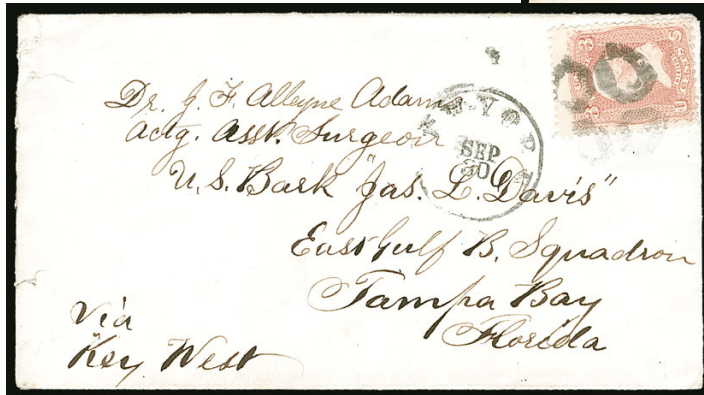 Dr. J. F. Alleyne Adams
Actg. Asst. Surgeon
U.S. Bark "Jas. L. Davis"
East Gulf B. Squadron
Tampa Bay
Florida
Via
Key West
SEP
30